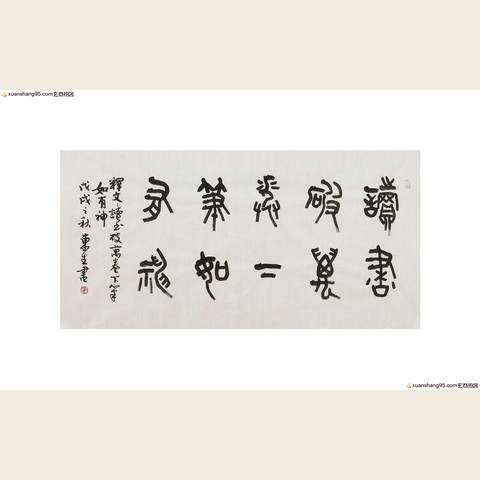 xuanshang95.com
讀書
破萬
卷下
筆如
有神
釋文讀書破萬卷下筆
如有神
戊戌之秋東生書
xuanshang95.com